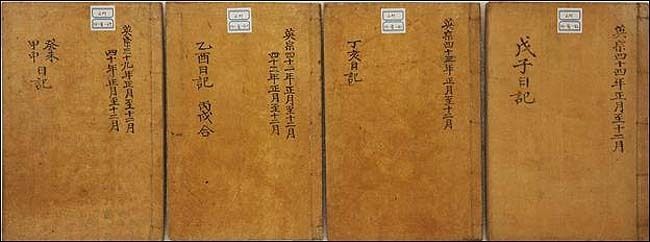 英宗三十九年正月至十二月
四十年正月至十二月
癸未
甲申
日記
英宗四十一年正月至十二月
四十二年正月至十二月
乙酉日記 丙戌合
英宗四十三年正月至十二月
丁亥日記
英宗四十四年正月至十二月
戊子日記